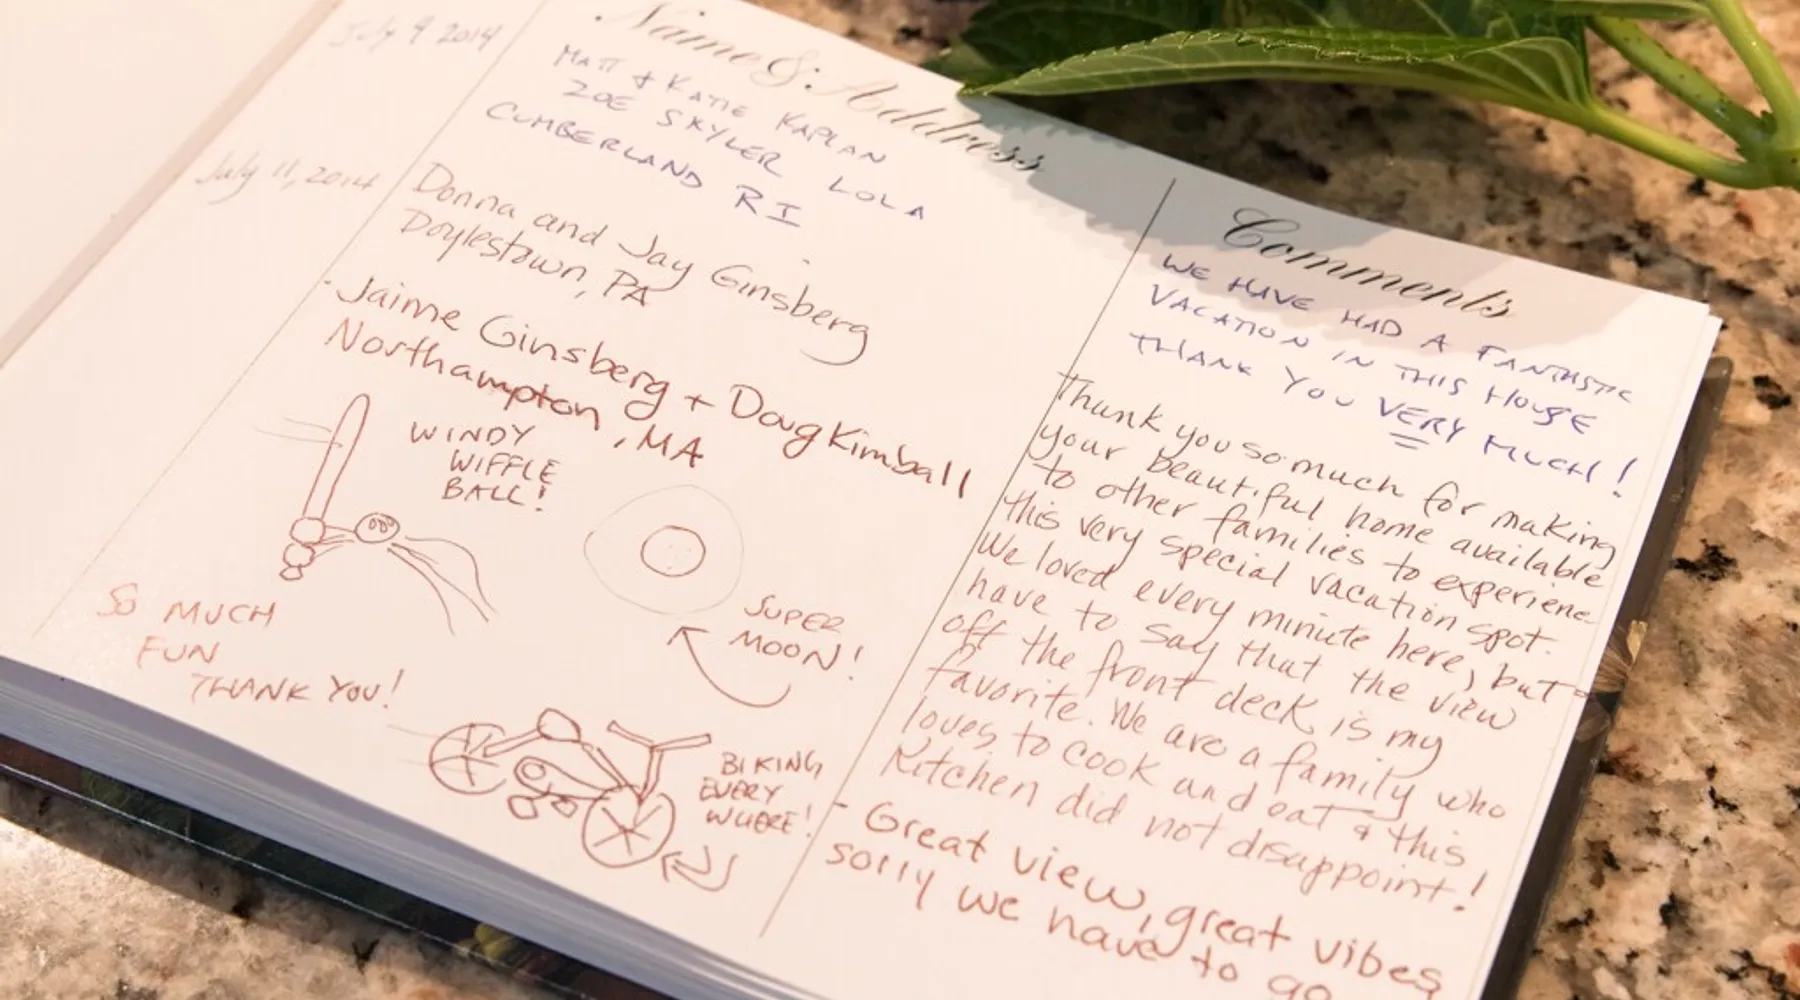 Name & Address
Comments
July 9 2014
MATT & KATIE KAPLAN
ZOE SKYLER LOLA
CUMBERLAND RI
WE HAVE HAD A FANTASTIC
VACATION IN THIS HOUSE
THANK YOU VERY MUCH!
July 11, 2014
Donna and Jay Ginsberg
Doylestown, PA
Thank you so much for making
your beautiful home available
to other families to experience
this very special vacation spot.
We loved every minute here, but
have to say that the view
off the front deck is my
favorite. We are a family who
loves to cook and eat & this
Kitchen did not disappoint!
Jaime Ginsberg + Doug Kimball
Northampton, MA
- Great view, great vibes
sorry we have to go
WINDY
WIFFLE
BALL!
SUPER
MOON!
SO MUCH
FUN
THANK YOU!
BIKING
EVERY
WHERE!